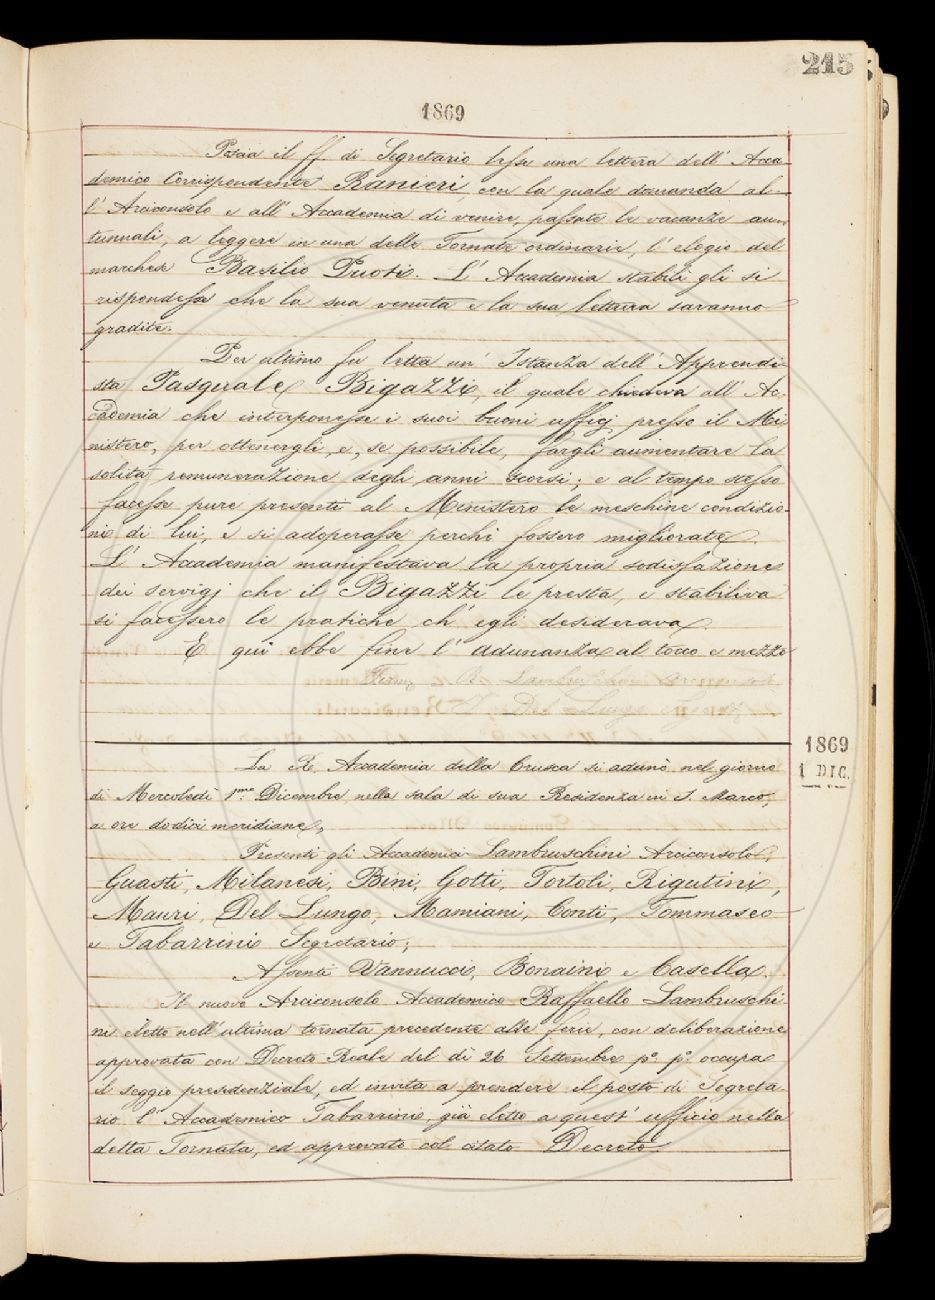 215
1869
Poscia il ff. di Segretario lesse una lettera dell' Acca-
demico Corrispondente Ranieri, con la quale domanda al-
l' Arciconsolo e all' Accademia di venire, passate le vacanze au-
tunnali, a leggere in una delle Tornate ordinarie, l' elogio del
marchese Basilio Puoti. L' Accademia stabilì gli si
rispondesse che la sua venuta e la sua lettura saranno
gradite.
Per ultimo fu letta un' Istanza dell' Apprendi-
sta Pasquale Bigazzi, il quale chiedeva all' Ac-
cademia che interponesse i suoi buoni ufficj presso il Mi-
nistero, per ottenergli, e, se possibile, fargli aumentare la
solita remunerazione degli anni scorsi; e al tempo stesso
facesse pure presenti al Ministero le meschine condizio-
ni di lui, e si adoperasse perchè fossero migliorate.
L' Accademia manifestava la propria sodisfazione
dei servigj che il Bigazzi le presta, e stabiliva
si facessero le pratiche ch' egli desiderava.
E qui ebbe fine l' adunanza al tocco e mezzo
Firm. R. Lambruschini Arciconsolo
I. Del Lungo
1869
1 DIC.
La R. Accademia della Crusca si adunò nel giorno
di Mercoledì 1.mo Dicembre nella sala di sua Residenza in S. Marco,
a ore dodici meridiane,
Presenti gli Accademici Lambruschini Arciconsolo,
Guasti, Milanesi, Bini, Gotti, Tortoli, Rigutini,
Mauri, Del Lungo, Mamiani, Conti, Tommaseo
e Tabarrini Segretario;
Assenti Vannucci, Bonaini e Casella.
Il nuovo Arciconsolo Accademico Raffaello Lambruschi-
ni eletto nell' ultima tornata precedente alle ferie, con deliberazione
approvata con Decreto Reale del dì 26 Settembre p.º p.º occupa
il seggio presidenziale, ed invita a prendere il posto di Segreta-
rio l' Accademico Tabarrini, già eletto a quest' ufficio nella
detta Tornata, ed approvato col citato Decreto.